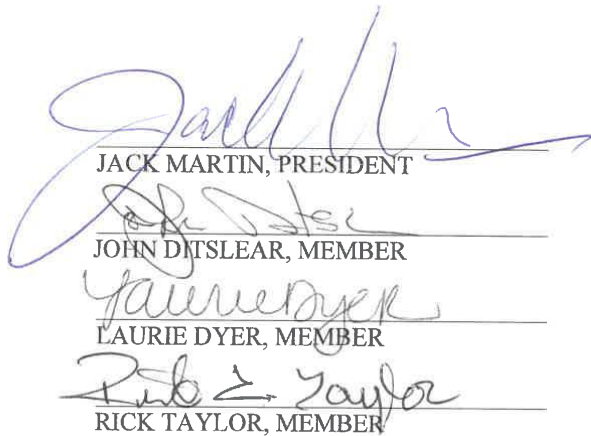 Jack M
JACK MARTIN, PRESIDENT
John Ditslear
JOHN DITSLEAR, MEMBER
Laurie Dyer
LAURIE DYER, MEMBER
Rick E. Taylor
RICK TAYLOR, MEMBER